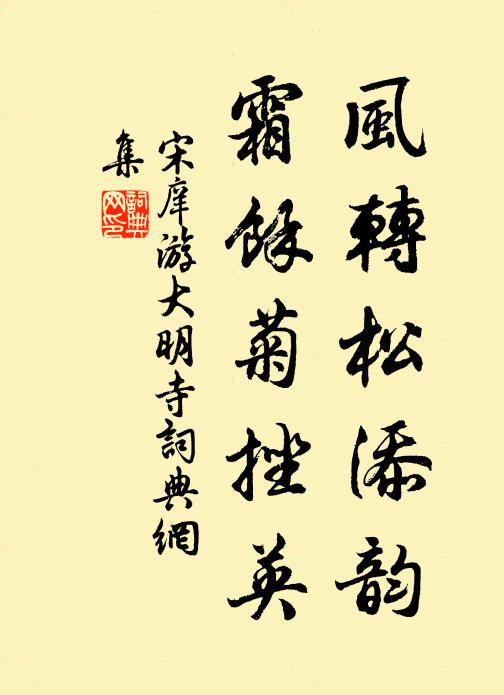 風轉松添韵
霜餘菊挫英
宋庠游大明寺詞典網
集
詞典網印